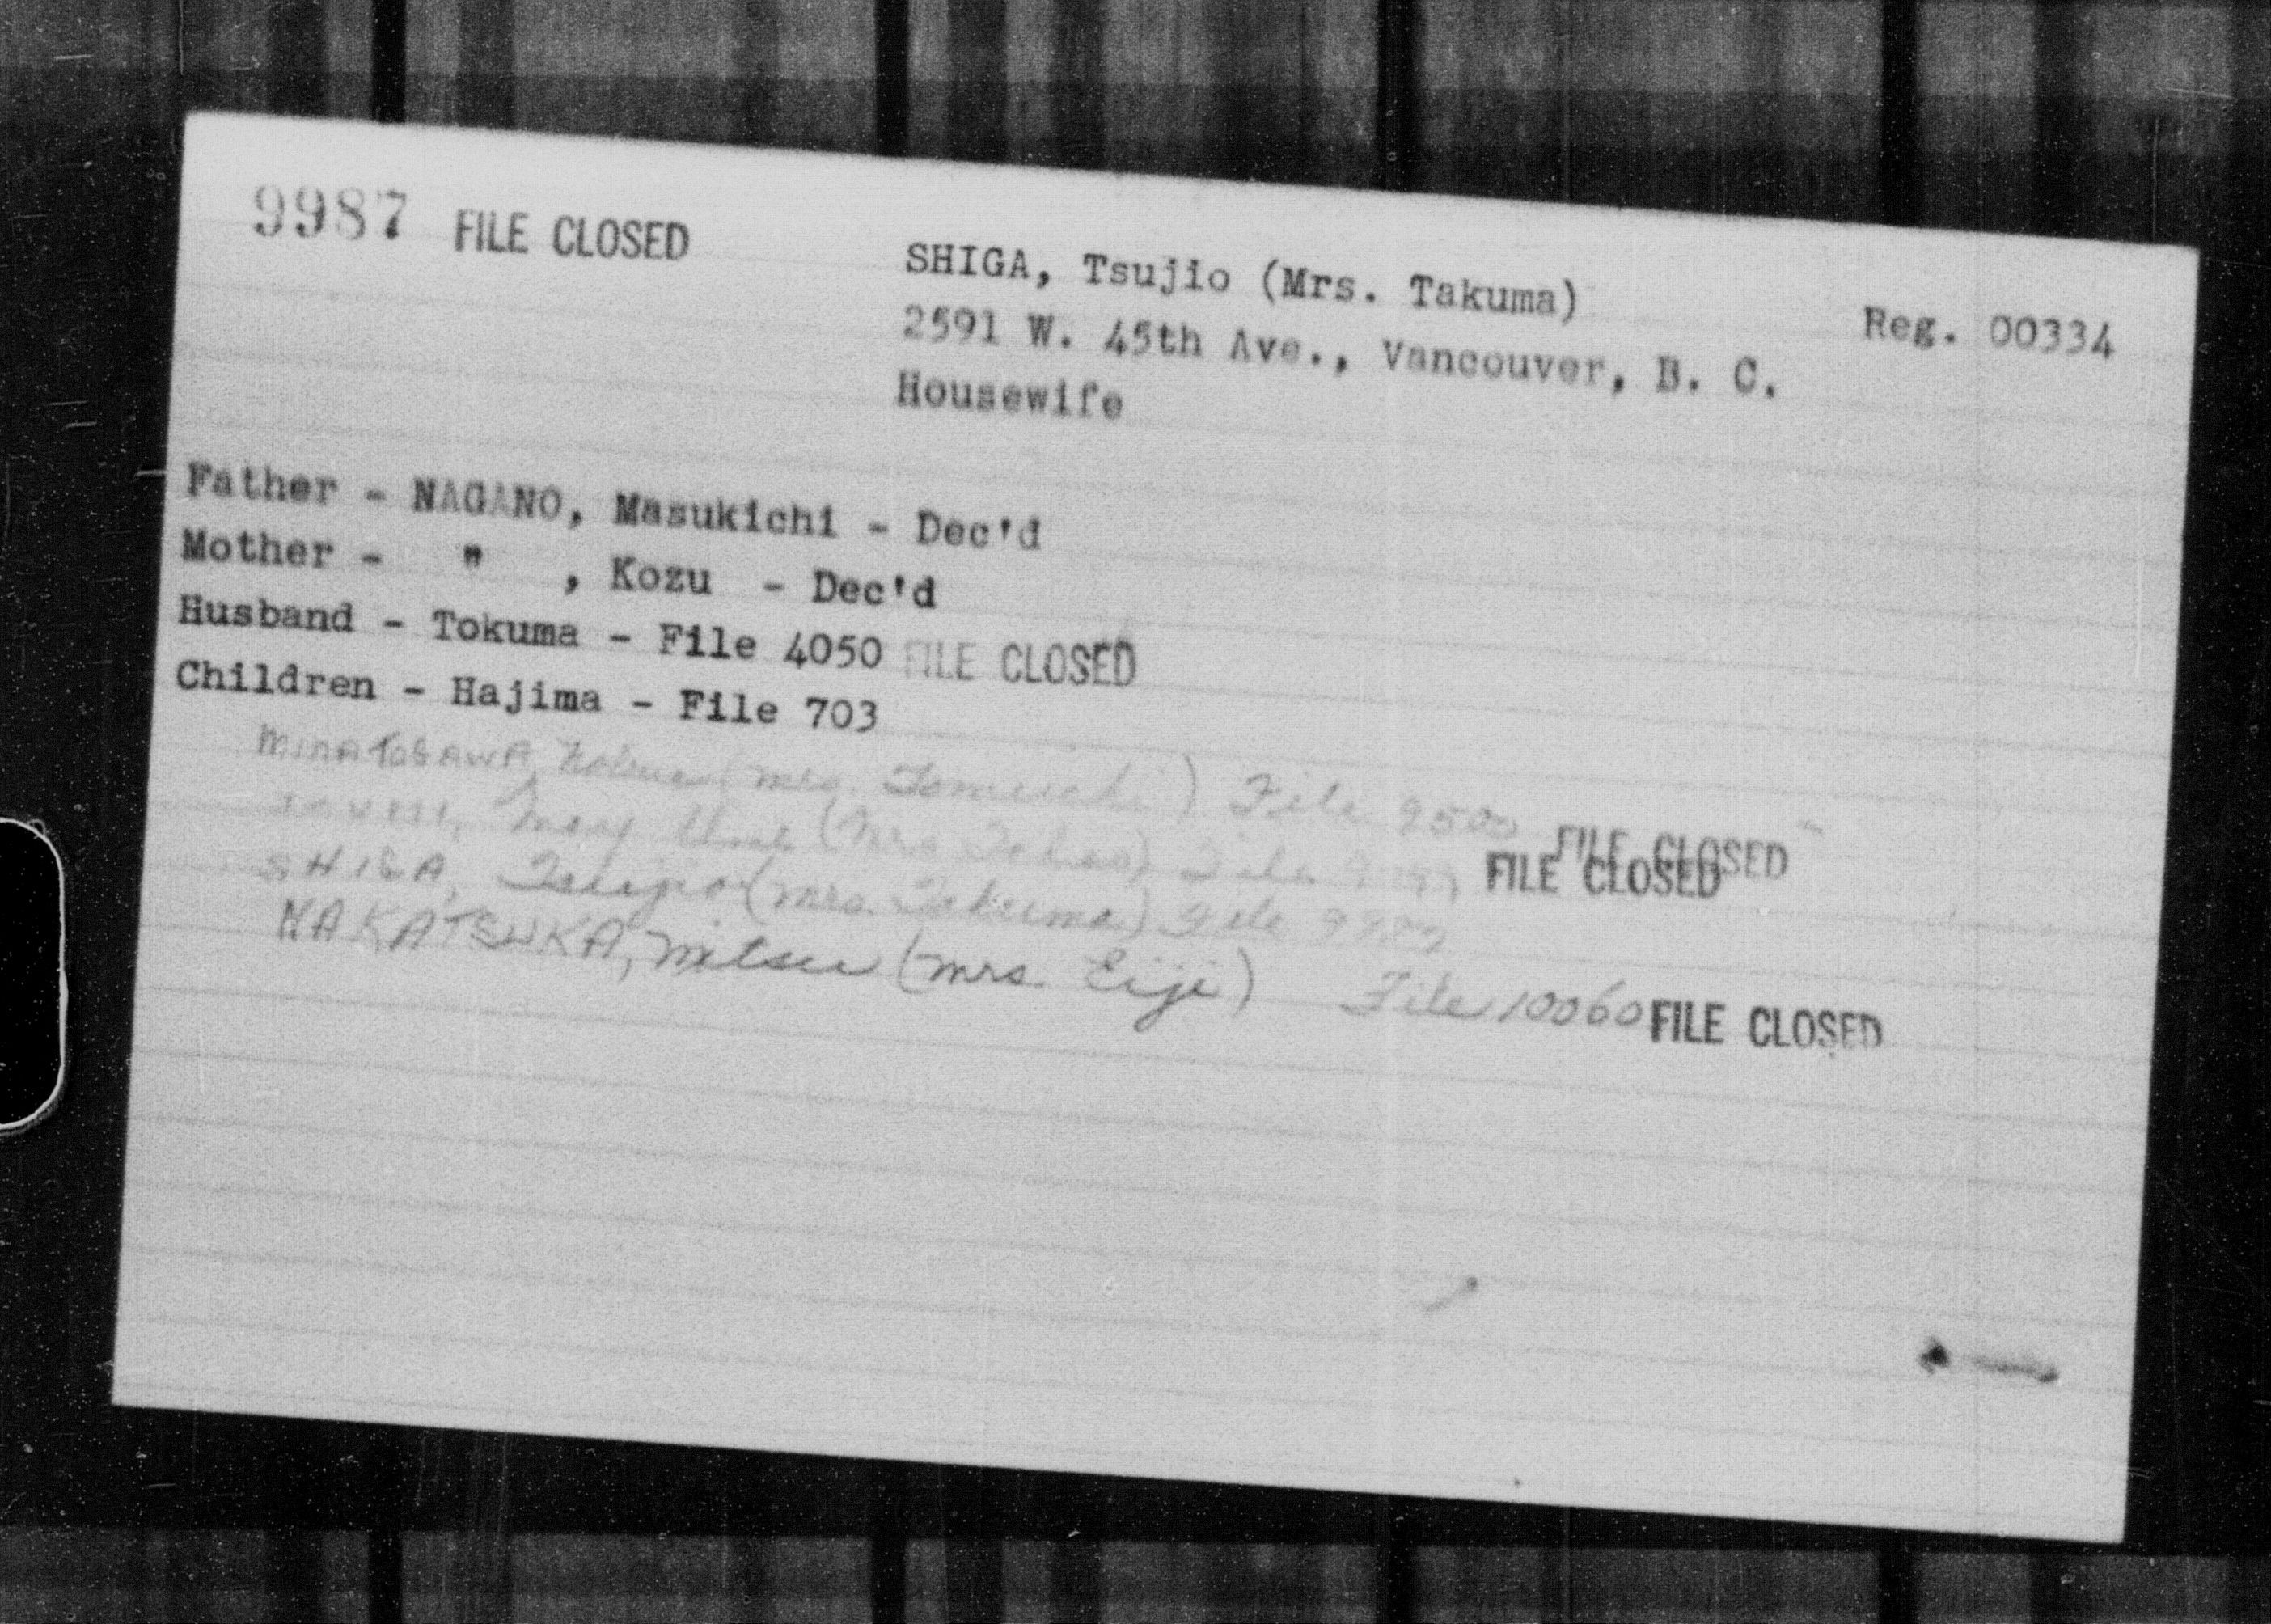 9987 FILE CLOSED
SHIGA, Tsujio (Mrs. Takuma)
Reg. 00334
2591 W. 45th Ave., Vancouver, B. C.
Housewife
Father - NAGANO, Masukichi - Dec'd
Mother - " , Kozu - Dec'd
Husband - Tokuma - File 4050 FILE CLOSED
Children - Hajima - File 703
(Mrs. ) File FILE CLOSED
May (Mrs. ) File FILE CLOSED
SHIGA, Tsujio (Mrs. Takuma) File
NAKATSUKA, Mitsu (Mrs. Eiji) File 10060 FILE CLOSED